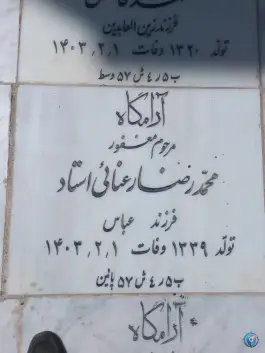 فرزند زین العابدین
تولد ۱۳۲۰ وفات ۱٫۲٫۱۴۰۳
ب۵ ر۴ ش۵۷ وسط
آرامگاه
مرحوم مغفور
محمدرضا رعنائی استاد
فرزند عباس
تولد ۱۳۳۹ وفات ۱٫۲٫۱۴۰۳
ب۵ ر۴ ش۵۷ پائین
آرامگاه